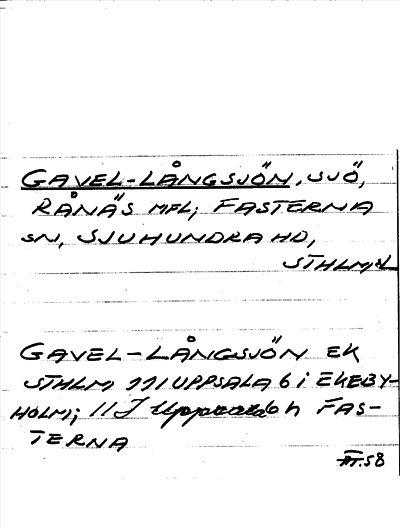 GAVEL-LÅNGSJÖN, SJÖ,
RÅNÄS MFL; FASTERNA
SN, SJUHUNDRA HD,
STHLM,L
GAVEL-LÅNGSJÖN EK
STHLM 111 UPPSALA 6 i EKEBY-
HOLM; 11 J h FAS-
TERNA
58